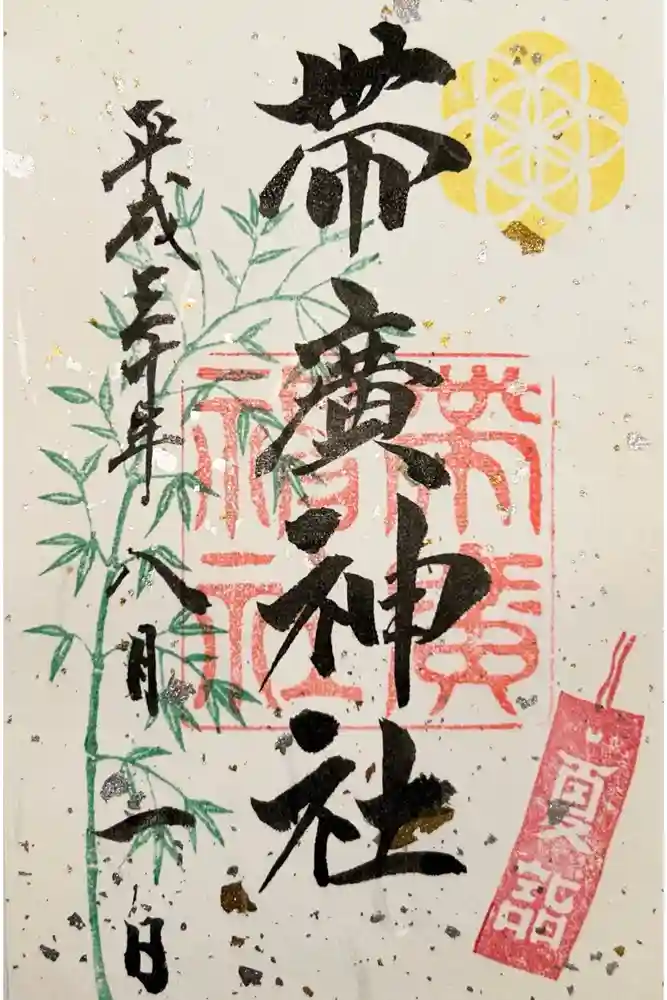 帯廣神社
平成三十年八月一日
帯廣
神社